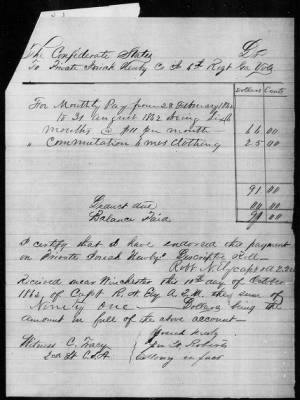 The Confederate States Dr
To Private Josiah Henby Co A 6th Regt Ga Vols
Dollars Cents
For Monthly Pay from 28 February 1862
to 31 August 1862 being Six
months @ $11 per month 66 00
" Commutation 6 mos Clothing 25 00
91 00
Deduct due 00 00
Balance Paid 91 00
I certify that I have endorsed the payment
on Private Josiah Henby's Descriptive Roll
Received near Winchester this 10th day of October
1862 of Capt R. N. Ely A.Q.M. the sum of
Ninety One Dollars being the
amount in full of the above account
Witness C. Tracy
2nd Lt C.S.A.